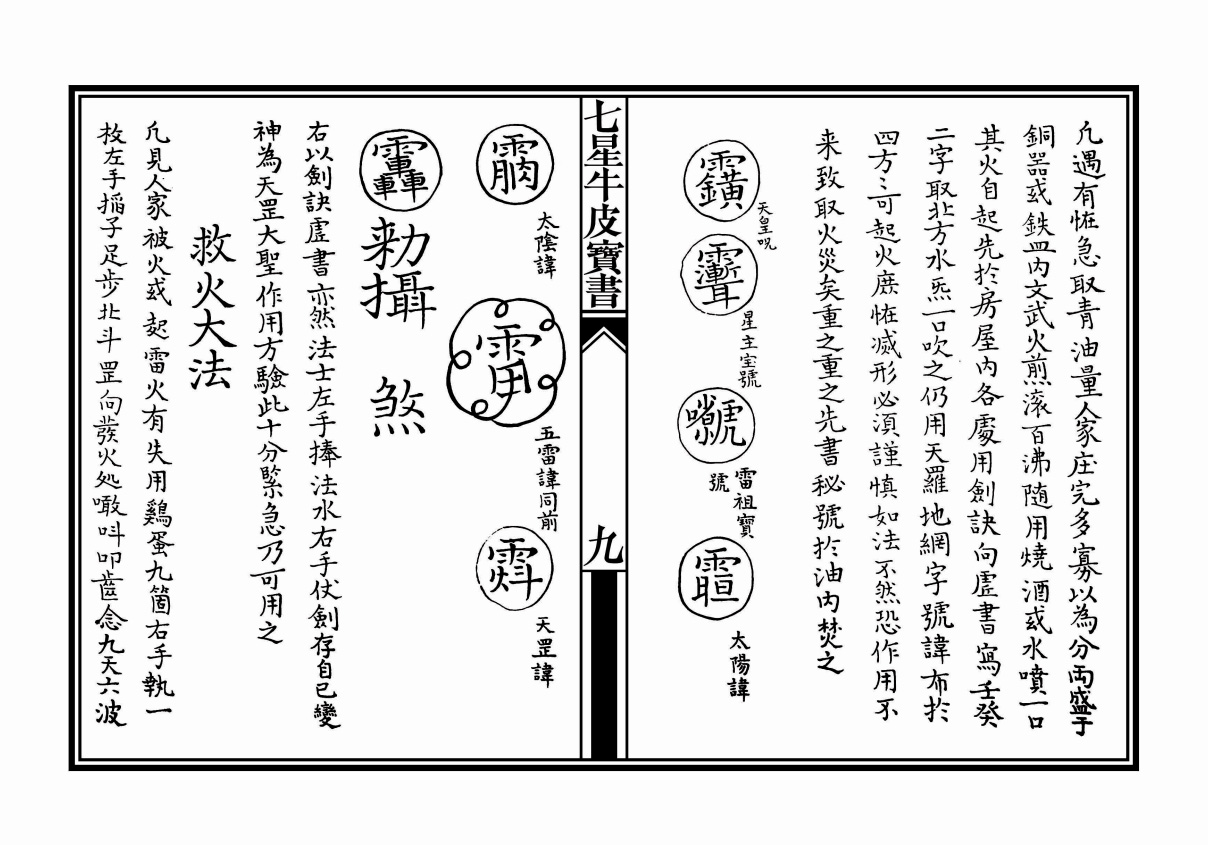 凢遇有恠急取青油量人家庄完多寡以為分両盛于
銅器或鉄皿内文武火煎滚百沸随用燒酒或水噴一口
其火自起先扵房屋内各處用劍訣向虗書寫壬癸
二字取北方水炁一口吹之仍用天羅地網字號諱布扵
四方〻可起火庶恠滅形必須謹慎如法不然恐作用不
来致取火災矣重之重之先書秘號扵油内焚之
天皇呪
星主宝號
雷祖寶
號
太陽諱
七星牛皮寶書
九
太陰諱
五雷諱同前
天罡諱
勑攝 煞
右以劍訣虗書亦然法士左手捧法水右手仗劍存自己變
神為天罡大聖作用方驗此十分緊急乃可用之
救火大法
凢見人家被火或起雷火有失用鷄蛋九箇右手執一
枚左手搯子足步北斗罡向發火処噉呌叩齒念九天六波